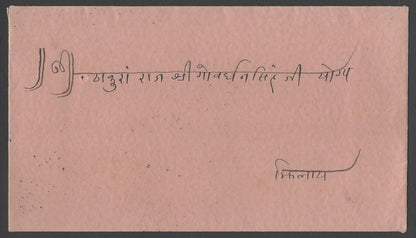 ॥श्री॥ ठाकुरां राज श्री गोवर्धनसिंहजी योग्य
झिलाय